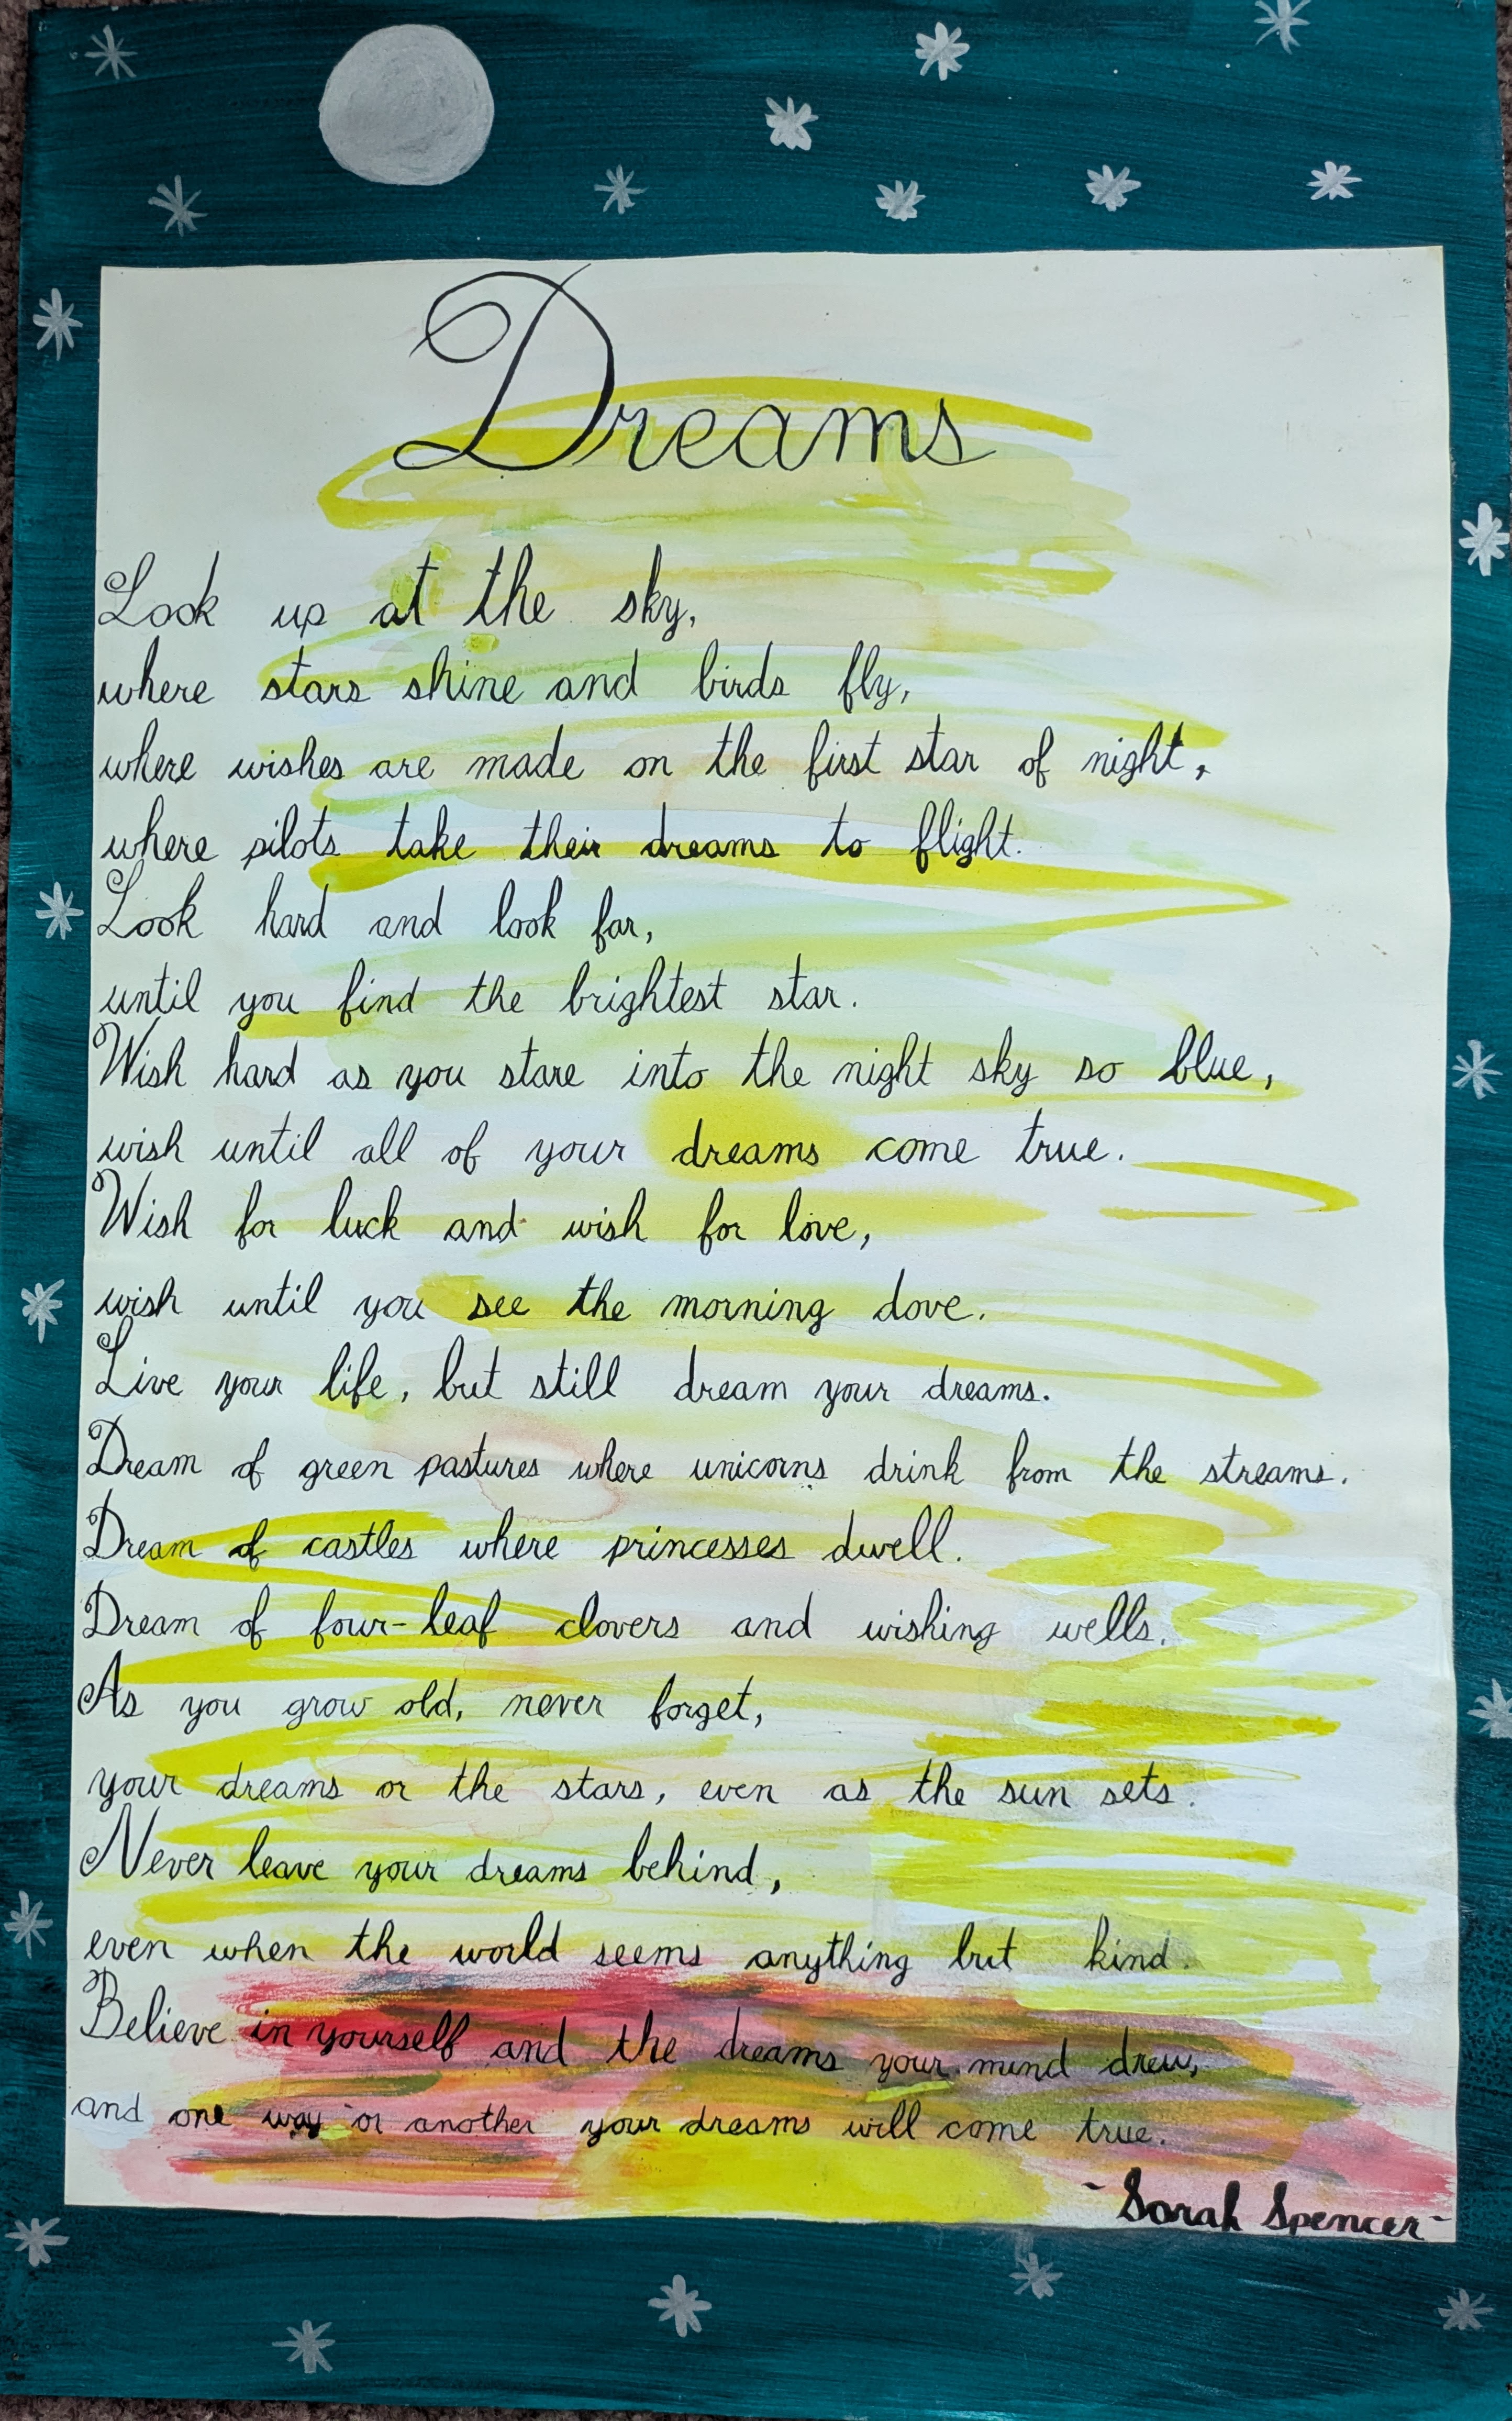 Dreams
Look up at the sky,
where stars shine and birds fly,
where wishes are made on the first star of night,
where pilots take their dreams to flight.
Look hard and look far,
until you find the brightest star.
Wish hard as you stare into the night sky so blue,
wish until all of your dreams come true.
Wish for luck and wish for love,
wish until you see the morning dove.
Live your life, but still dream your dreams.
Dream of green pastures where unicorns drink from the streams.
Dream of castles where princesses dwell.
Dream of four-leaf clovers and wishing wells.
As you grow old, never forget,
your dreams or the stars, even as the sun sets.
Never leave your dreams behind,
even when the world seems anything but kind.
Believe in yourself and the dreams your mind drew,
and one way or another your dreams will come true.
- Sarah Spencer -